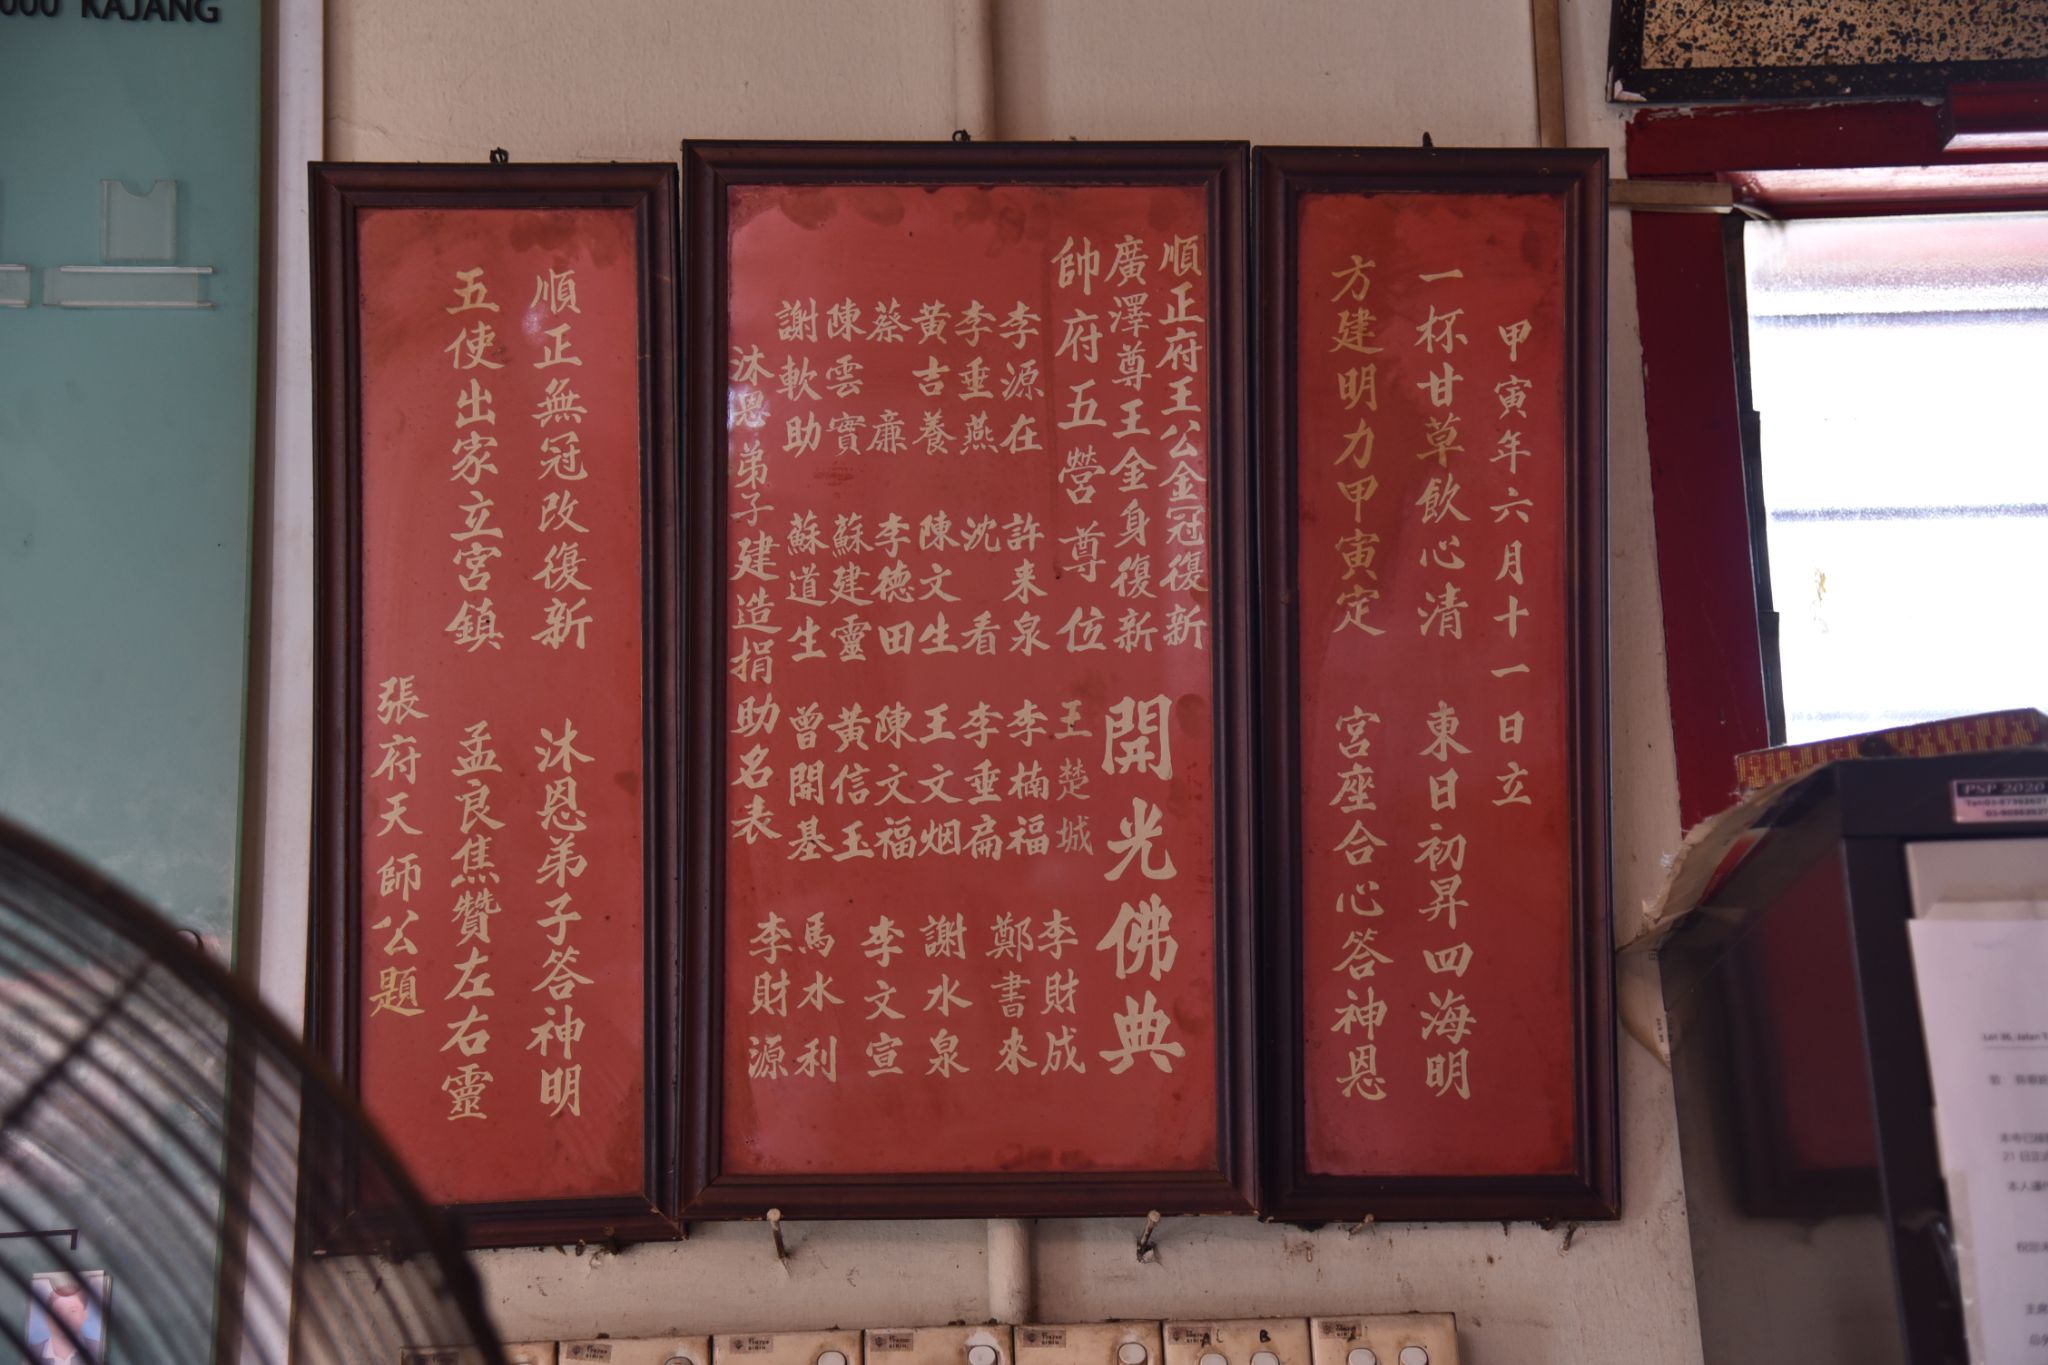 甲寅年六月十一日立
一杯甘草飲心清 東日初昇四海明
方建明力甲寅定 宮座合心答神恩
順正府王公金冠復新
廣澤尊王金身復新
帥府五營尊位
開光佛典
李源在 許来泉 王楚城 李財成
李垂燕 沈看 李楠福 鄭書來
黃吉養 陳文生 李垂扁 謝水泉
蔡㢘 李德田 王文烟 李文宣
陳雲實 蘇建靈 陳文福 馬水利
謝軟助 蘇道生 黃信玉 李財源
曾開基
沐恩弟子建造捐助名表
順正無冠改復新 沐恩弟子答神明
五使出家立宮鎮 孟良焦贊左右靈
張府天師公題
000 KAJANG
PSP 2020